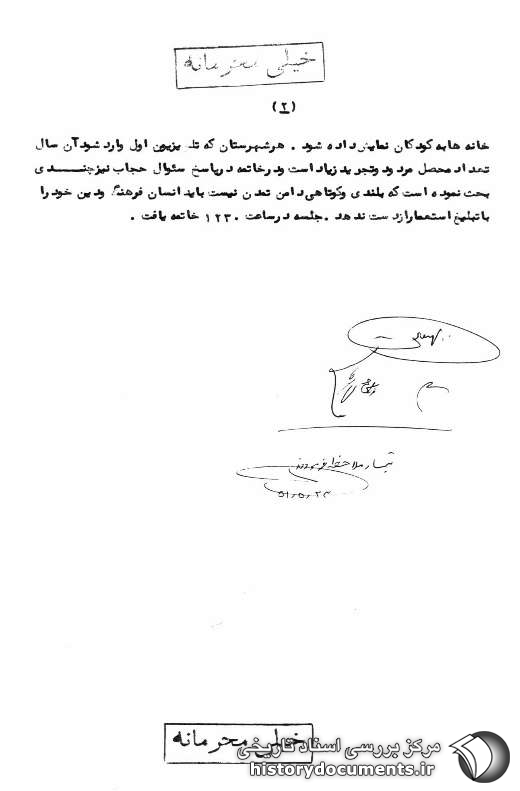 خیلی محرمانه
(۲)
خانه ها به کودکان نمایش داده شود . هر شهرستان که تلویزیون اول وارد شود آن سال
تعداد محصل مردود وتجرید زیاد است ودر خاتمه در پاسخ سئوال حجاب نیز چنــدی
بحث نموده است که بلندی وکوتاهی دامن تمدن نیست باید انسان فرهنگ ودین خود را
با تبلیغ استعمار از دست ندهد . جلسه در ساعت ۱۲۳۰ خاتمه یافت .
تیمسار ملاحظه فرمودند
۵۱٫۵٫۲۳
خیلی محرمانه
مرکز بررسی اسناد تاریخی
historydocuments.ir